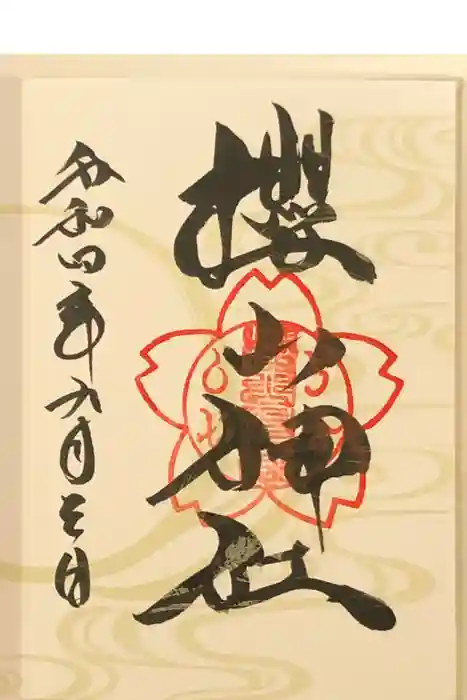 櫻山神社
令和四年九月三日